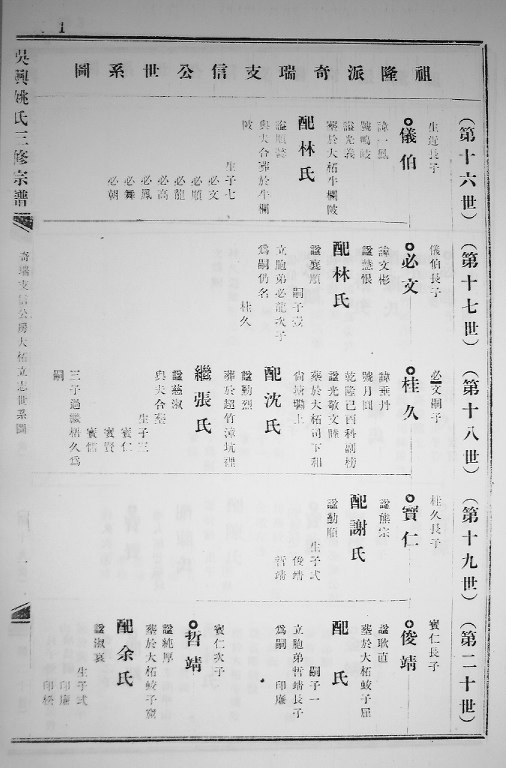 祖隆派奇瑞支信公世系圖
(第十六世)
生逵長子
儀伯
諱一鳳
號鳴岐
諡光義
墓於大柘牛欄陂
配林氏
諡順慈
與夫合葬於牛欄
陂
生子七
必文
必順
必龍
必高
必鳳
必舞
必朝
(第十七世)
儀伯長子
必文
諱文彬
諡慧恨
配林氏
諡襄順
嗣子壹
立胞弟必龍次子
為嗣仍名
桂久
(第十八世)
必文嗣子
桂久
諱乘丹
號月圓
乾隆己酉科副榜
諡光敬文睦
墓於大柘司下和
尚塘壩上
配沈氏
諡勤烈
葬於超竹漳坑裡
繼張氏
諡慈淑
與夫合葬
生子三
賓仁
賓賢
賓信
三子過繼梧久為
嗣
(第十九世)
桂久長子
賓仁
諡能宗
配謝氏
諡勤順
生子弍
俊靖
哲靖
(第二十世)
賓仁長子
俊靖
諡耿直
墓於大柘蛟子屈
配 氏
嗣子一
立胞弟哲靖長子
為嗣 印廉
賓仁次子
哲靖
諡純厚
墓於大柘蛟子窠
配余氏
諡淑哀
生子弍
印廉
印松
吳興姚氏三修宗譜
奇瑞支信公房大柘立志世系圖